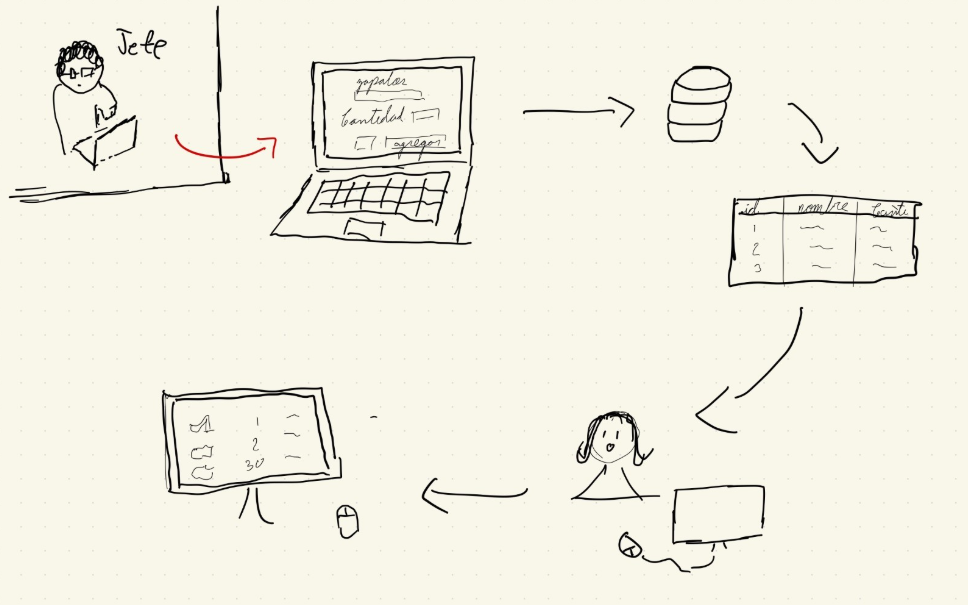 Jefe
zapatos
Cantidad
agregar
id nombre Canti
1
2
3
1
2
30